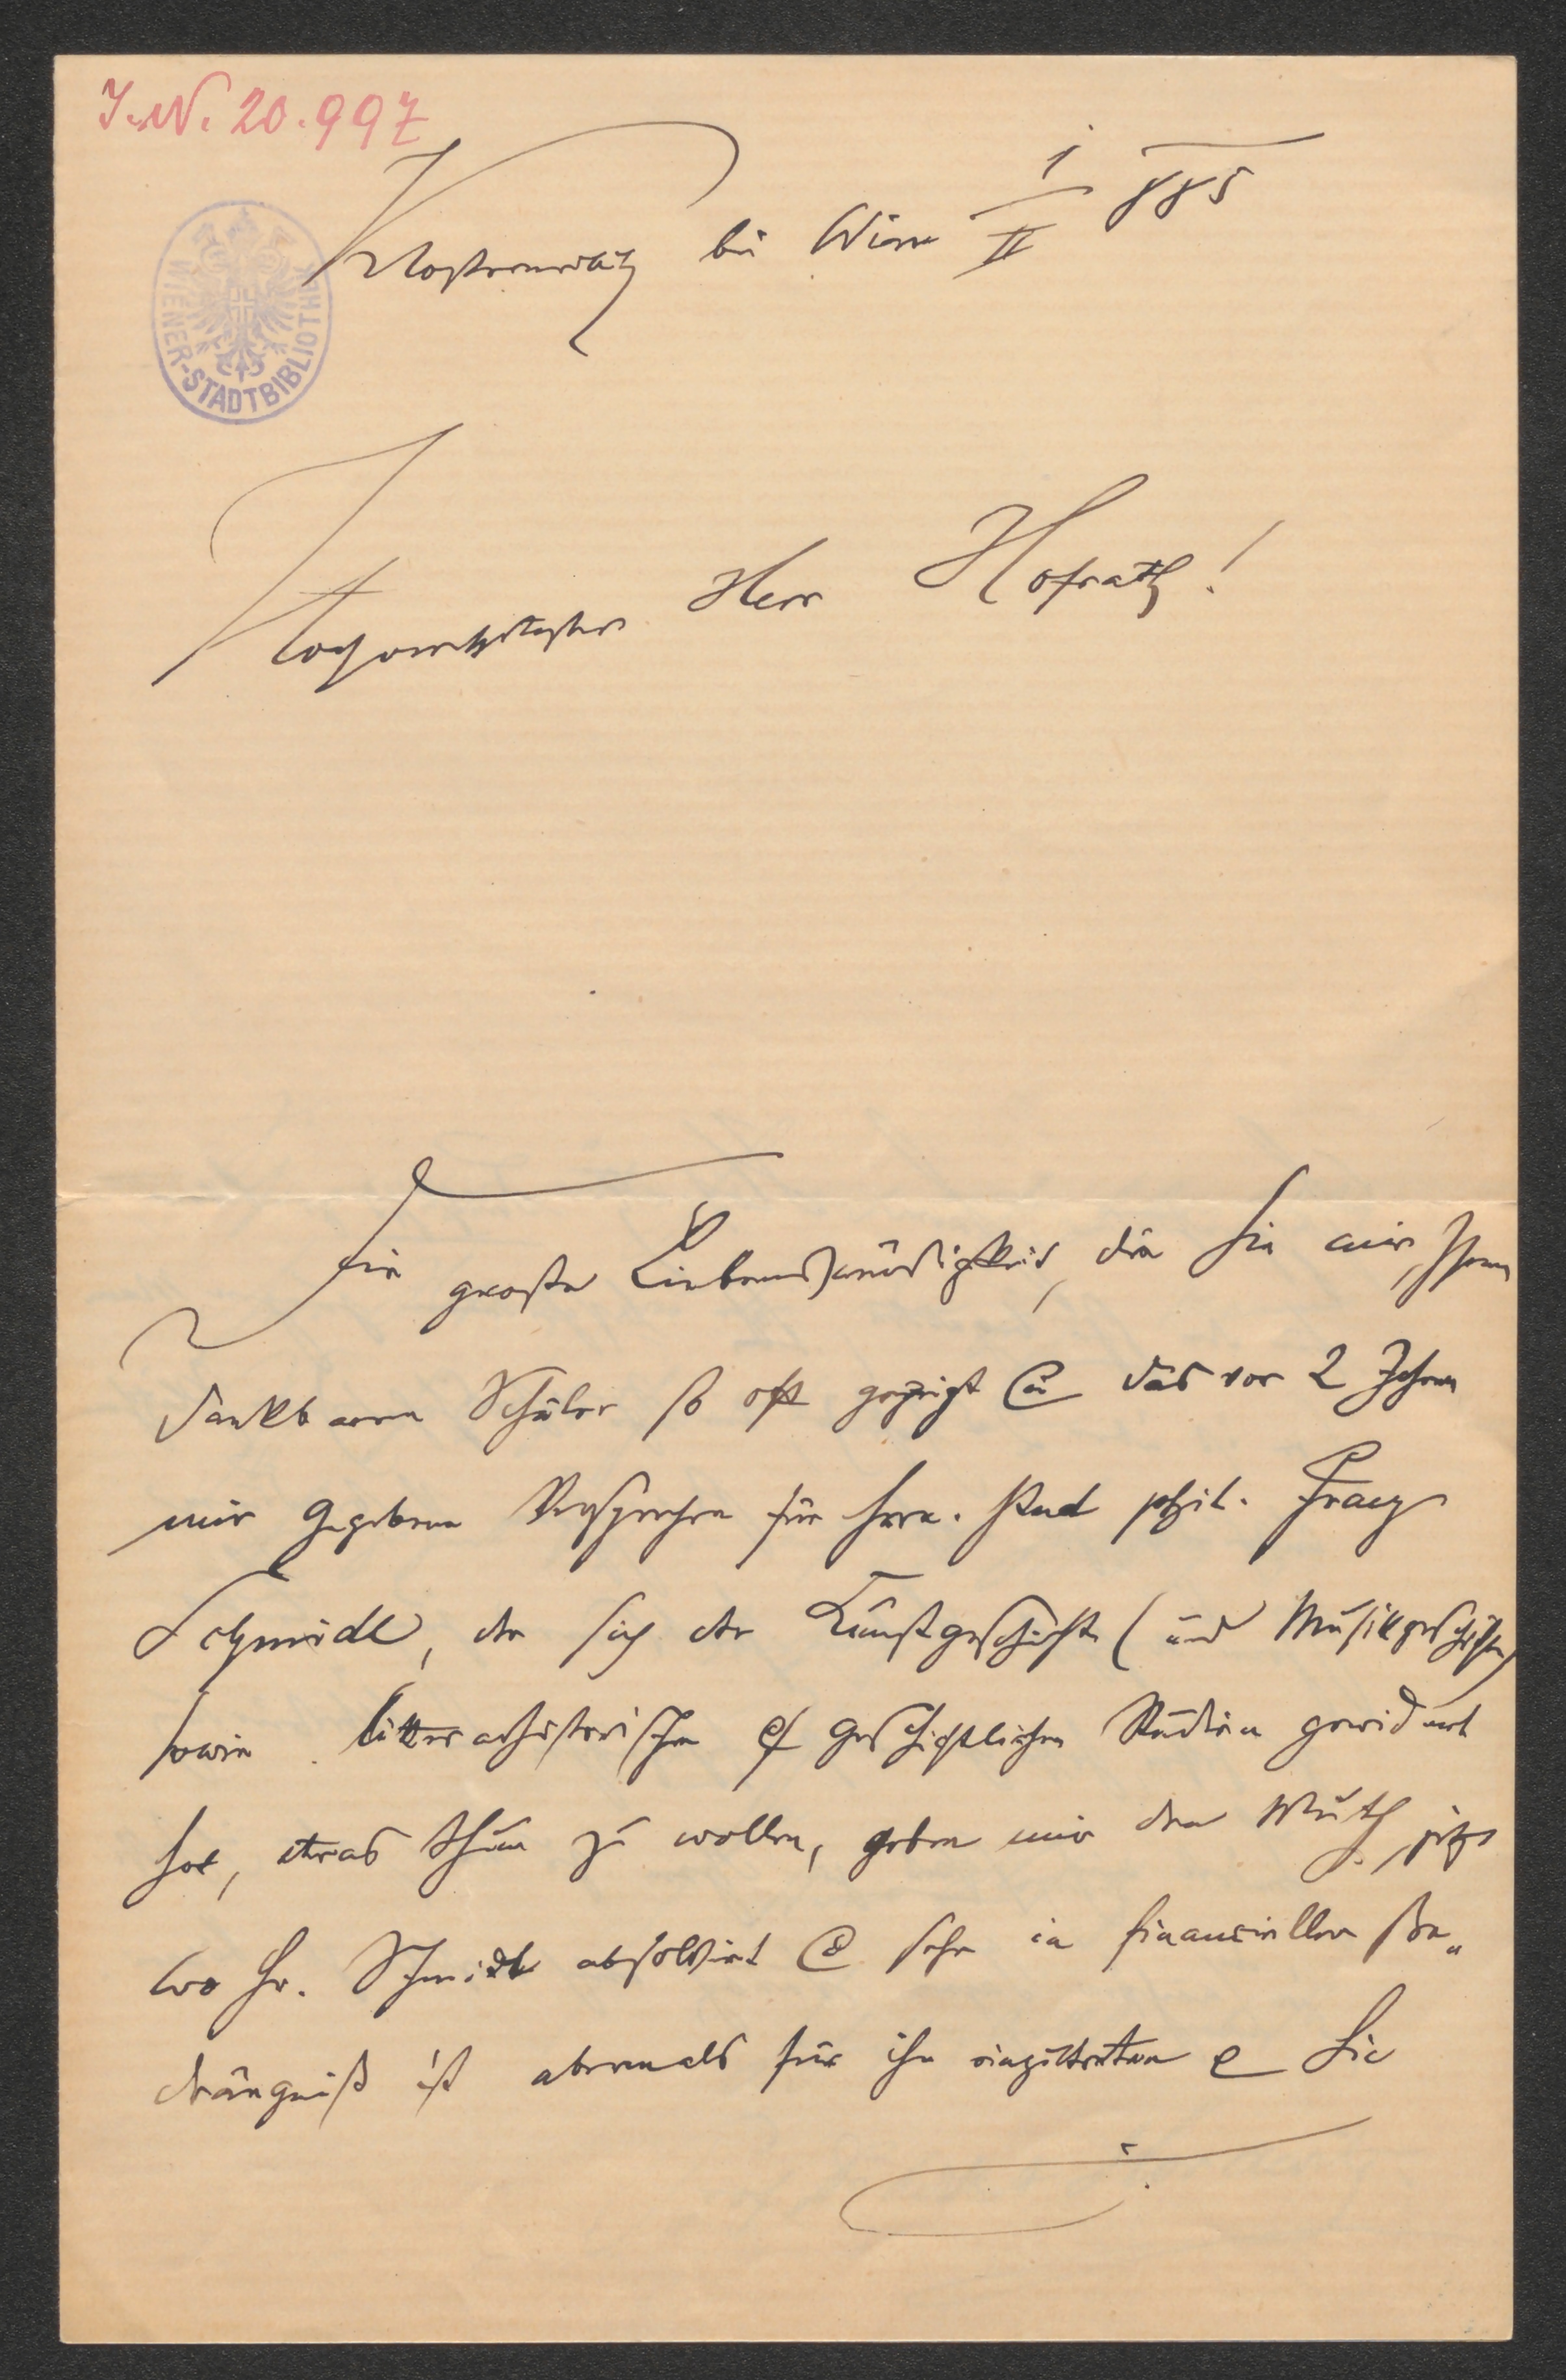 I.N. 20.997
WIENER-STADTBIBLIOTHEK
Klosterneubg bei Wien 1/II 885
Hochverehrtester Herr Hofrath!
Die große Liebenswürdigkeit, die Sie mir, Ihrem
dankbaren Schüler so oft gezeigt & das vor 2 Jahren
mir gegebene Versprechen für Hrn. stud phil. Franz
Schmidl, der sich der Kunstgeschichte (und Musikgeschichte)
sowie litterarhistorischen & geschichtlichen Studien gewidmet
hat, etwas thun zu wollen, geben mir den Muth jetzt
wo Hr. Schmidl absolvirt & sehr in finanzieller Be„
drängniß ist abermals für ihn einzutreten & Sie